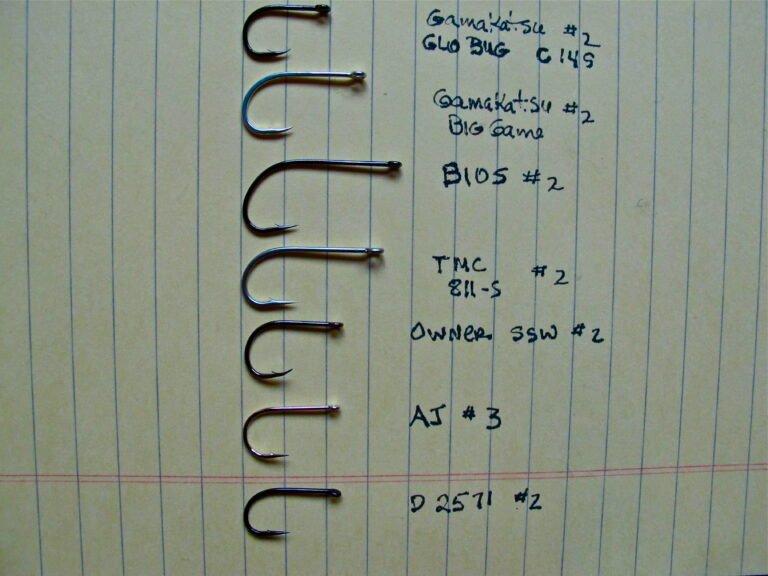 Gamakatsu #2
GLO BUG C14S
Gamakatsu #2
BIG Game
B10S #2
TMC #2
811-S
OWNER SSW #2
AJ #3
D 2571 #2